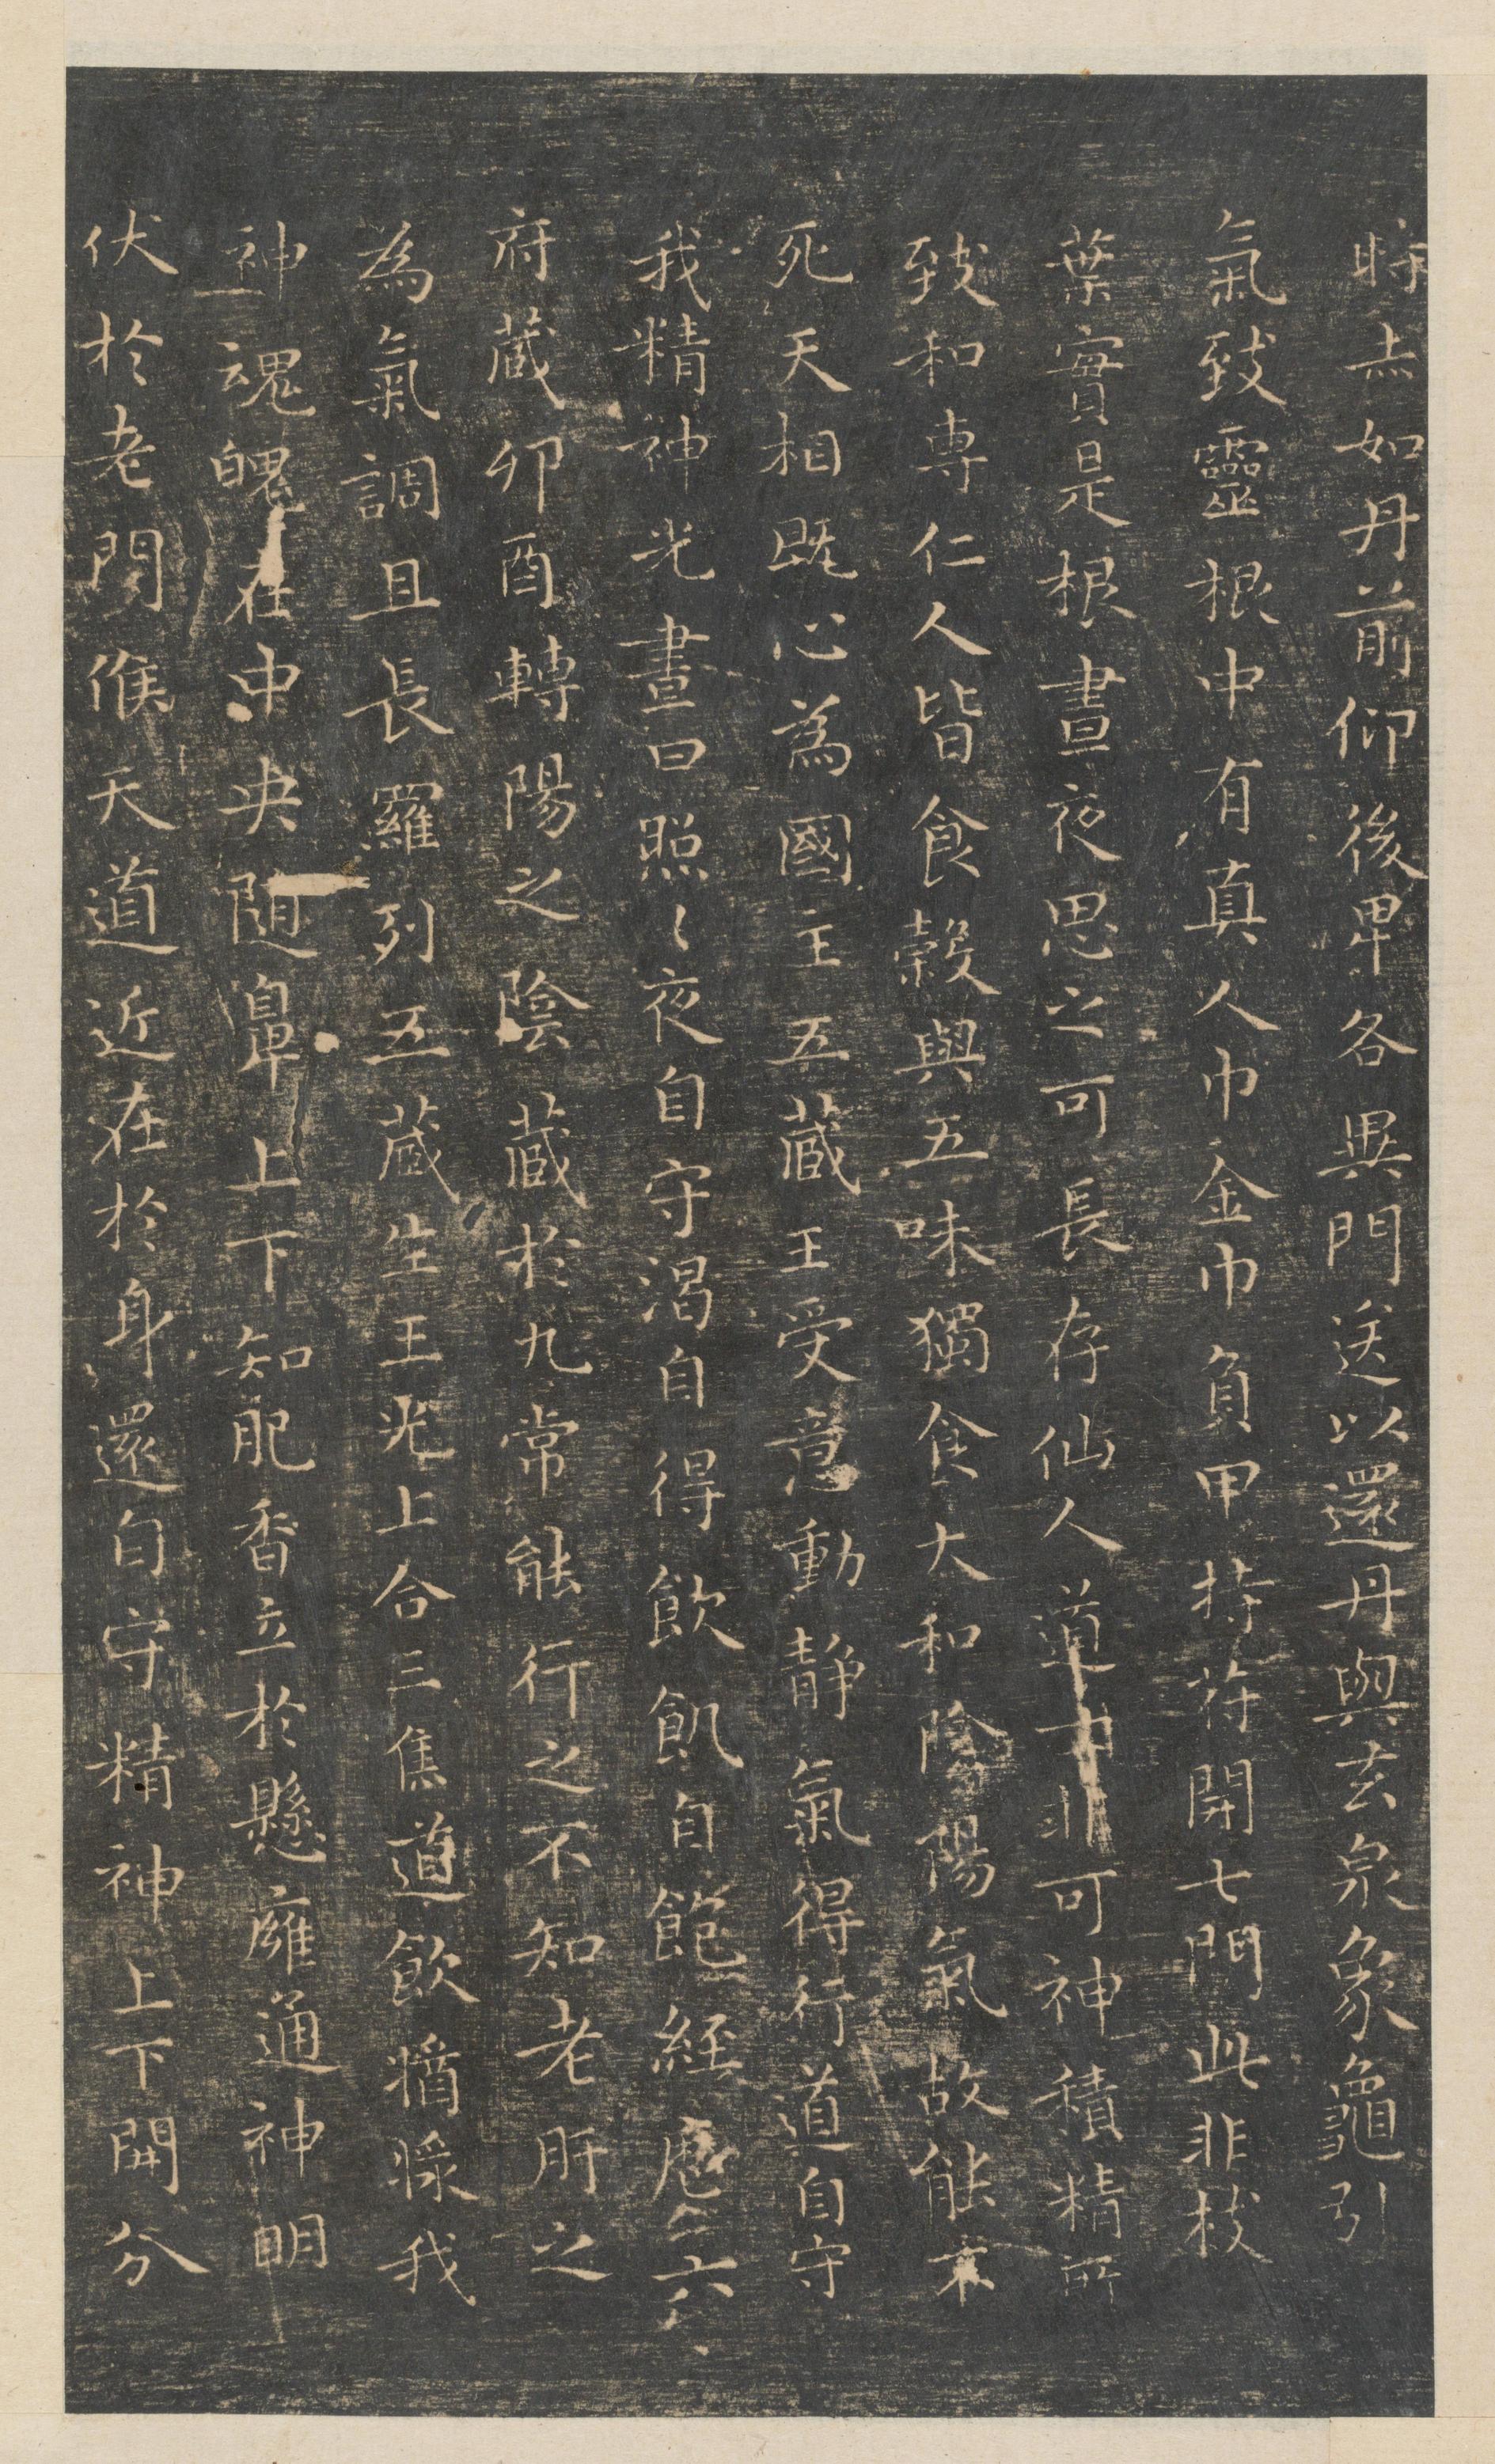 時念如丹前仰後卑各異門送以還丹與玄泉象龜引
氣致靈根中有真人巾金巾負甲持符開七門此非枝
葉實是根晝夜思之可長存仙人道士非可神積精所
致和專仁人皆食穀與五味獨食大和陰陽氣故能不
死天相既心為國主五藏王受意動静氣得行道自守
我精神光晝日照〻夜自守渴自得飲飢自飽經歷六
府藏卯酉轉陽之陰藏於九常能行之不知老肝之
為氣調且長羅列五藏生三光上合三焦道飲醬漿我
神魂魄在中央隨鼻上下知肥香立於懸廱通神明
伏於老門候天道近在於身還自守精神上下開分